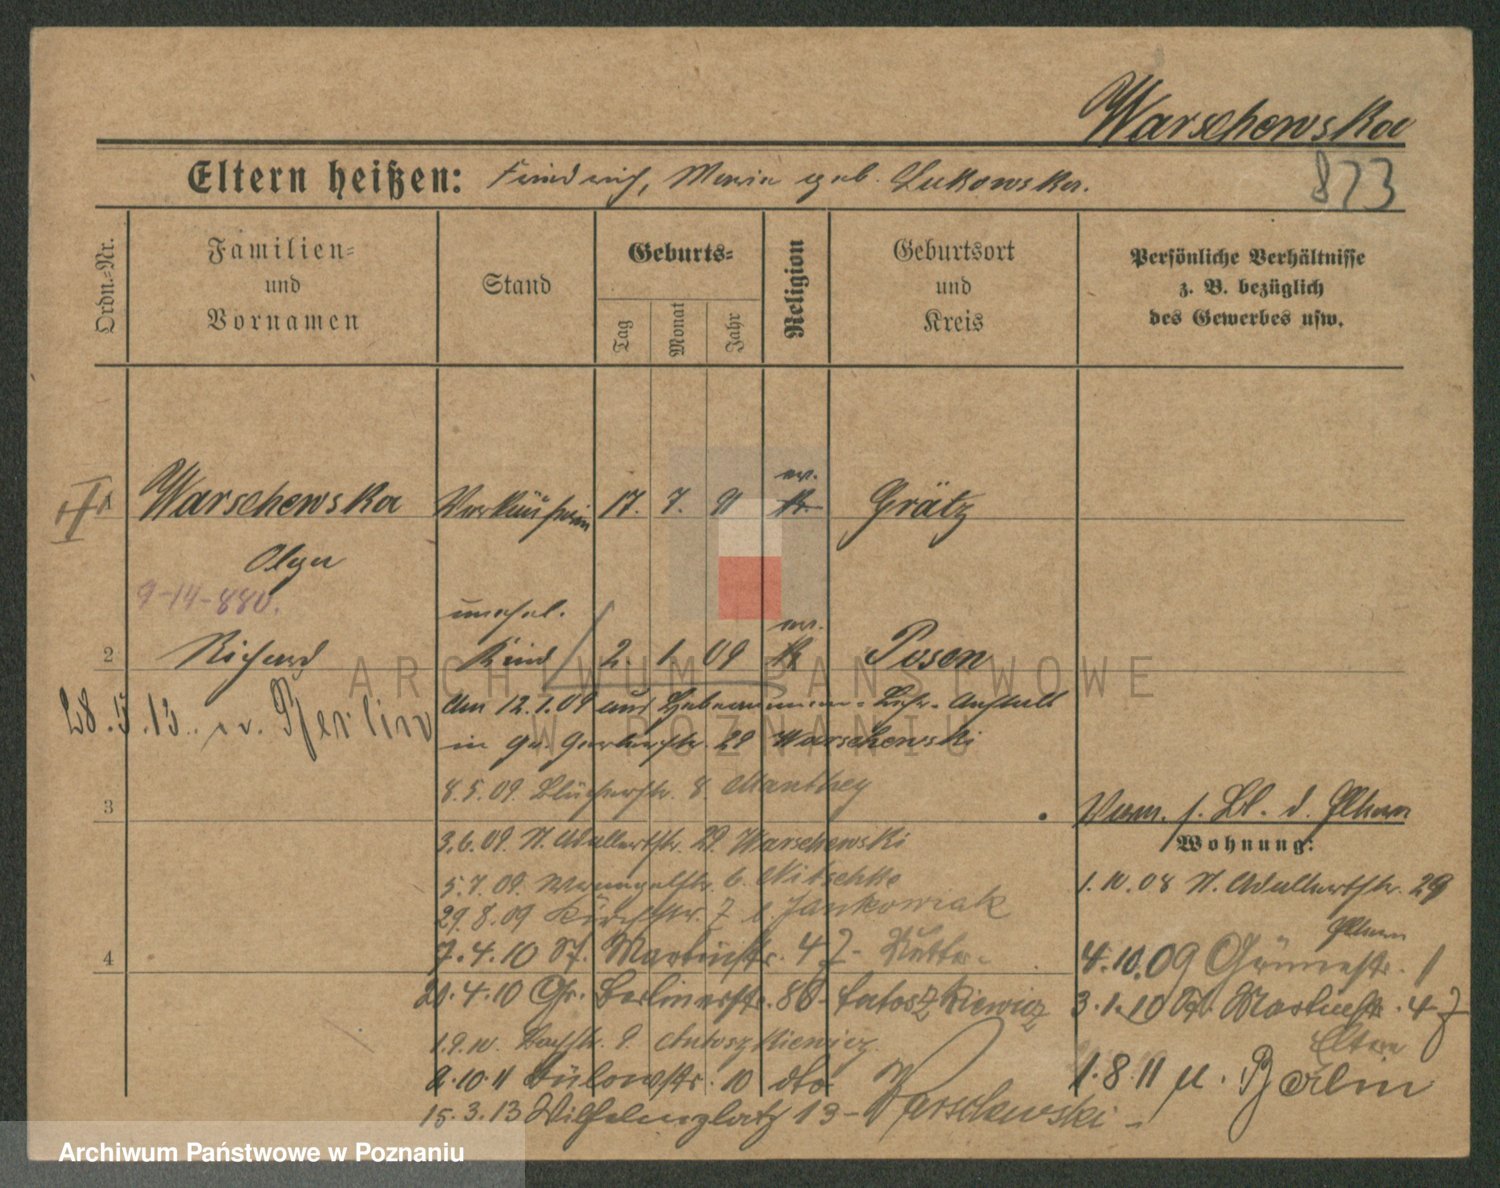 Warschewska
873
Eltern heißen: Friedrich, Maria geb. Lukowska.
Ordn.-Nr.
Familien- und Vornamen
Stand
Geburts-
Tag
Monat
Jahr
Religion
Geburtsort und Kreis
Persönliche Verhältnisse z. B. bezüglich des Gewerbes usw.
Warschewska Verkäuferin 17. 7. 91 ev. Grätz
Olga
9-14-880.
unehel.
2 Richard Kind 2. 1. 09 ev. Posen
28.5.13. n. Berlin
Am 12.1.09 aus Hebammen-Lehr-Anstalt
in Gr. Gerberstr. 29 Warschewski
8.5.09. Blücherstr. 8. Manthey
3
3.6.09. N. Adalbertstr. 29. Warschewski
5.7.09. 6. Nitschke
29.8.09 7 b. Jankowiak
4
7.4.10 St. Martinstr. 47-
20.4.10 Gr. Berlinerstr. 86-
1.9.10. 9. Antoszkiewicz.
2.10.11 Bülowstr. 10 dto
15.3.13 Wilhelmsplatz 13- Warschewski-
Verm. s. Bl. d. Eltern
Wohnung:
1.10.08 N. Adalbertstr. 29
Eltern
4.10.09
3.1.10 St. Martinstr. 47
Eltern
1.8.11 n. Berlin
ARCHIWUM PAŃSTWOWE
W POZNANIU
Archiwum Państwowe w Poznaniu